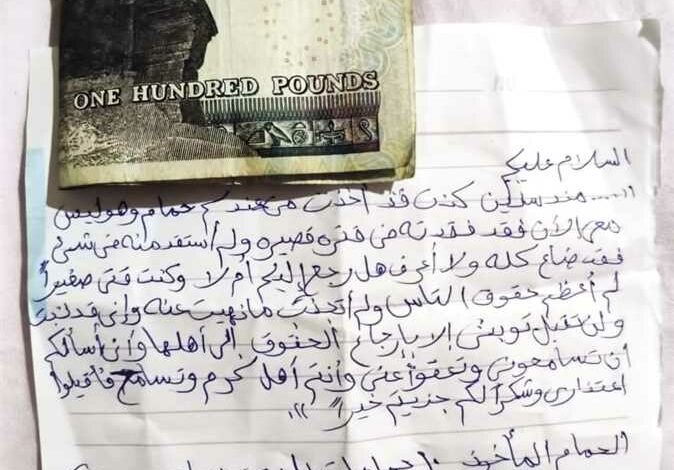 ONE HUNDRED POUNDS
السلام عليكم
"..... منذ سنين كنت قد أخذت من عندكم حمام وهو ليس
معي الآن فقد فقدته في فتره قصيره ولم أستفد منه في شئ
فقد ضاع كله ولا أعرف هل رجع إليكم أم لا وكنت فتى صغيراً
لم أعظم حقوق الناس ولم أتجنب ما نهيت عنه وإني قد تبت
ولن تقبل توبتي إلا بإرجاع الحقوق إلى أهلها وأن أسألكم
أن تسامحوني وتعفوا عني وأنتم أهل كرم وتسامح فأقبلوا
اعتذاري وشكراً لكم جزيتم خيراً "..
الحمام المأخوذ